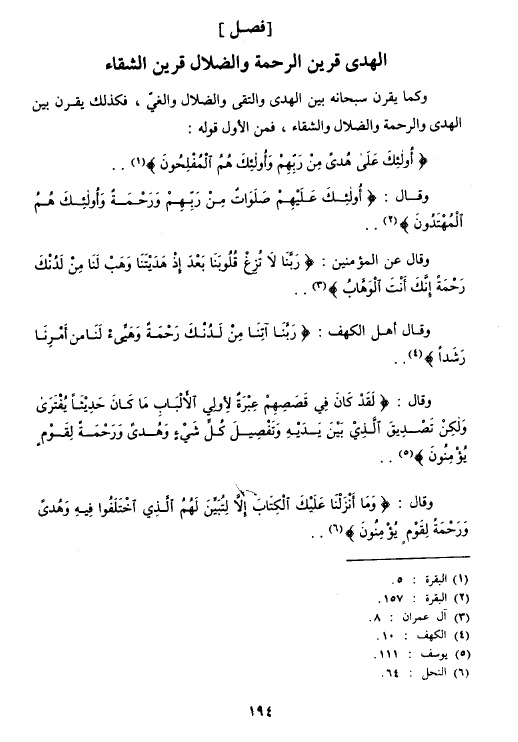 [ فصل ]
الهدى قرين الرحمة والضلال قرين الشقاء
وكما يقرن سبحانه بين الهدى والتقى والضلال والغيّ ، فكذلك يقرن بين
الهدى والرحمة والضلال والشقاء ، فمن الأول قوله :
﴿ أُولٰئِكَ عَلَىٰ هُدىً مِنْ رَبِّهِمْ وَأُولٰئِكَ هُمُ ٱلْمُفْلِحُونَ ﴾(١) . .
وقال : ﴿ أُولٰئِكَ عَلَيْهِمْ صَلَوَاتٌ مِنْ رَبِّهِمْ وَرَحْمَةٌ وَأُولٰئِكَ هُمُ
ٱلْمُهْتَدُونَ ﴾(٢) . .
وقال عن المؤمنين : ﴿ رَبَّنَا لَا تُزِغْ قُلُوبَنَا بَعْدَ إِذْ هَدَيْتَنَا وَهَبْ لَنَا مِنْ لَدُنْكَ
رَحْمَةً إِنَّكَ أَنْتَ ٱلْوَهَّابُ ﴾(٣) . .
وقال أهل الكهف : ﴿ رَبَّنَا آتِنَا مِنْ لَدُنْكَ رَحْمَةً وَهَيِّىءْ لَنَا من أَمْرِنَا
رَشَداً ﴾(٤) . .
وقال : ﴿ لَقَدْ كَانَ فِي قَصَصِهِمْ عِبْرَةٌ لِأولِي ٱلْأَلْبَابِ مَا كَانَ حَدِيثَاً يُفْتَرَىٰ
وَلٰكِنْ تَصْدِيقَ ٱلَّذِيْ بَيْنَ يَدَيْهِ وَتَفْصِيلَ كُلِّ شَيْءٍ وَهُدىً وَرَحْمَةً لِقَوْمٍ
يُؤْمِنُونَ ﴾(٥) . .
وقال : ﴿ وَمَا أَنْزَلْنَا عَلَيْكَ ٱلْكِتَابَ إِلَّا لِتُبَيِّنَ لَهُمُ ٱلَّذِي ٱخْتَلَفُوا فِيهِ وَهُدىً
وَرَحْمَةً لِقَوْمٍ يُؤْمِنُونَ ﴾(٦) . .
(١) البقرة : ٥.
(٢) البقرة : ١٥٧.
(٣) آل عمران : ٨.
(٤) الكهف : ١٠.
(٥) يوسف : ١١١.
(٦) النحل : ٦٤.
١٩٤